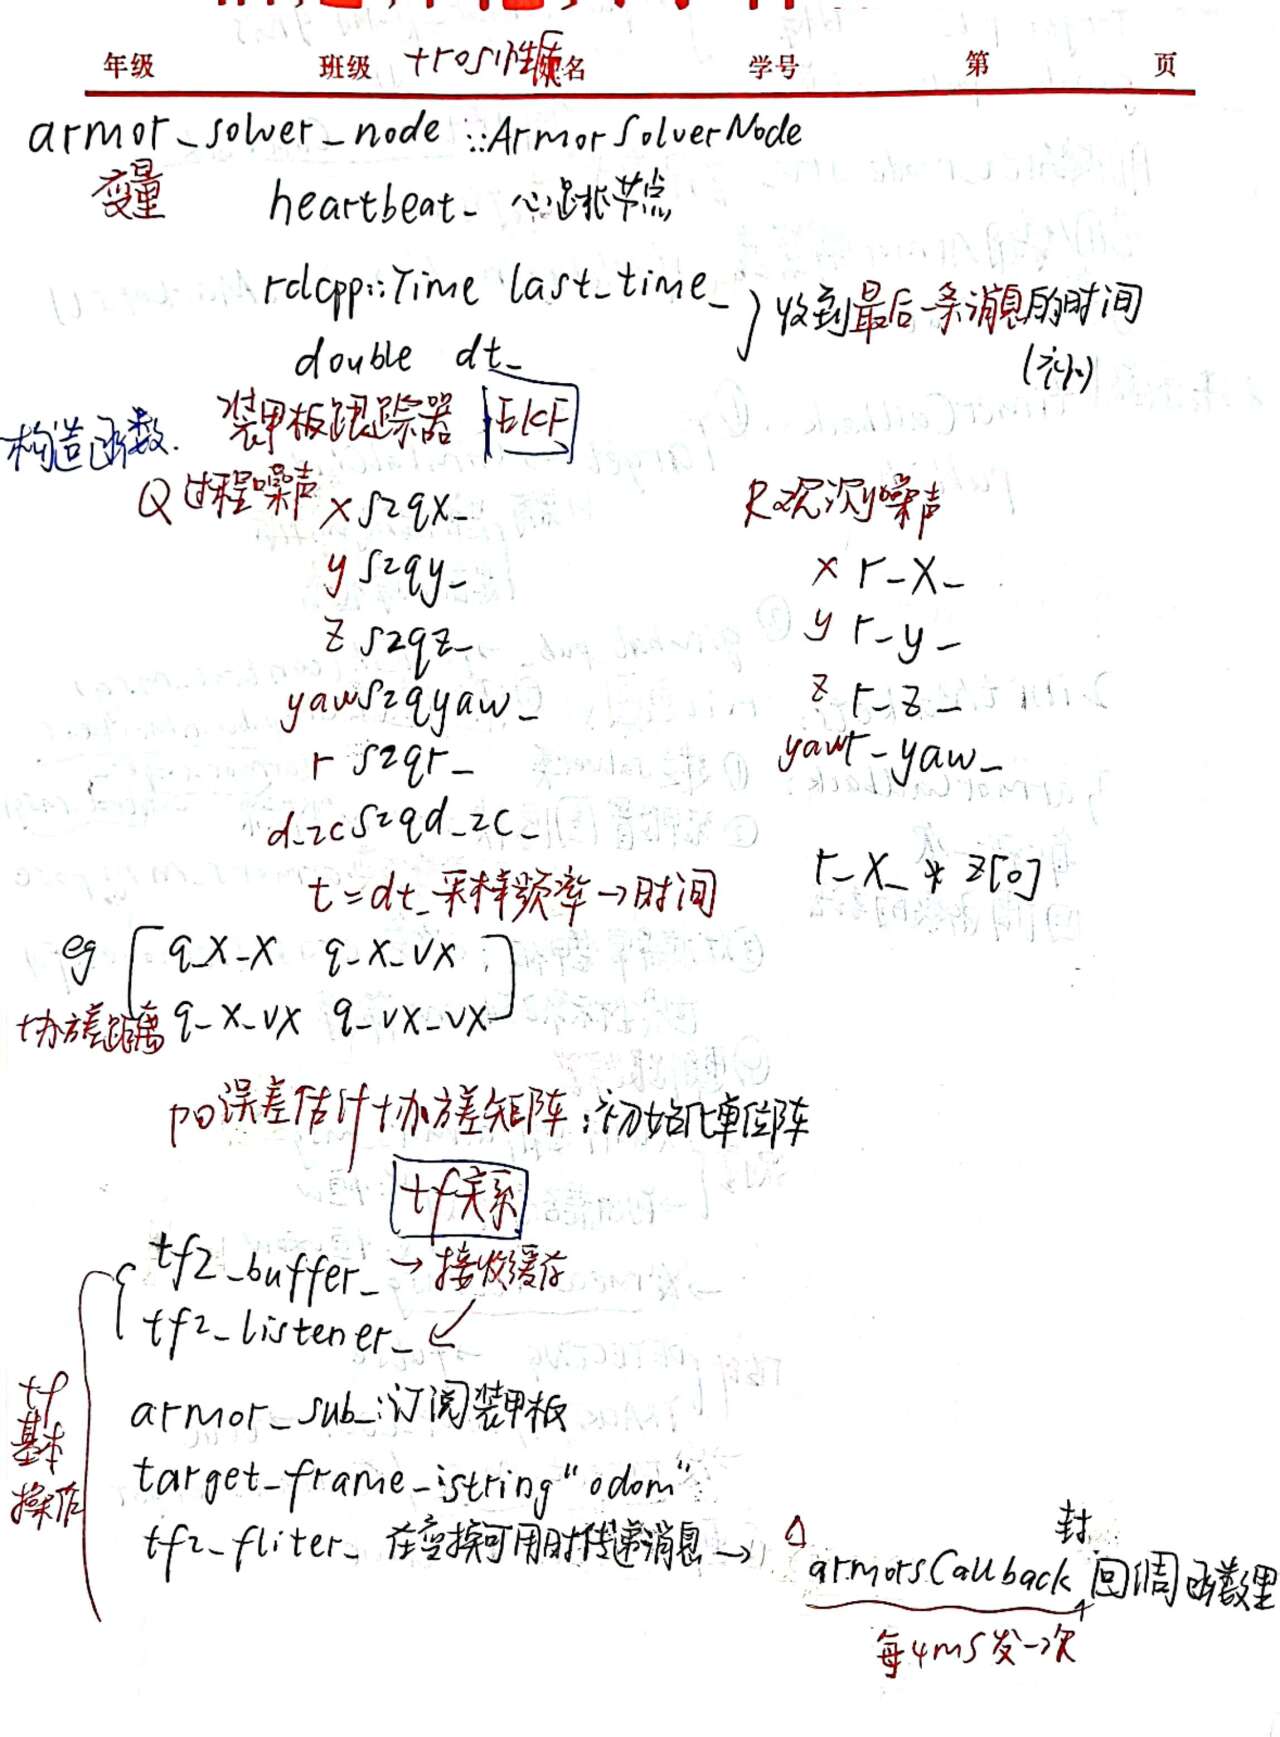 年级 班级 名 学号 第 页
+ros性质
armor_solver_node::ArmorSolverNode
变量 heartbeat_ 心跳节点
rclcpp::Time last_time_
double dt_
收到最后一条消息的时间
(初)
构造函数. 装甲板跟踪器 EKF
Q过程噪声 x s2qx_
y s2qy_
z s2qz_
yaw s2qyaw_
r s2qr_
d_zc s2qd_zc_
t=dt_采样频率→时间
R观测噪声
x r_x_
y r_y_
z r_z_
yaw r_yaw_
r_x_ * z[0]
eg q_x_x q_x_vx
协方差距离 q_x_vx q_vx_vx
p0误差估计协方差矩阵:初始化单位阵
tf关系
tf2_buffer_→接收缓存
tf2_listener_
tf基本操作
armor_sub_:订阅装甲板
target_frame_:string"odom"
tf2_fliter_ 在变换可用时传递消息→
封
armorsCallback 回调函数里
每4ms发一次